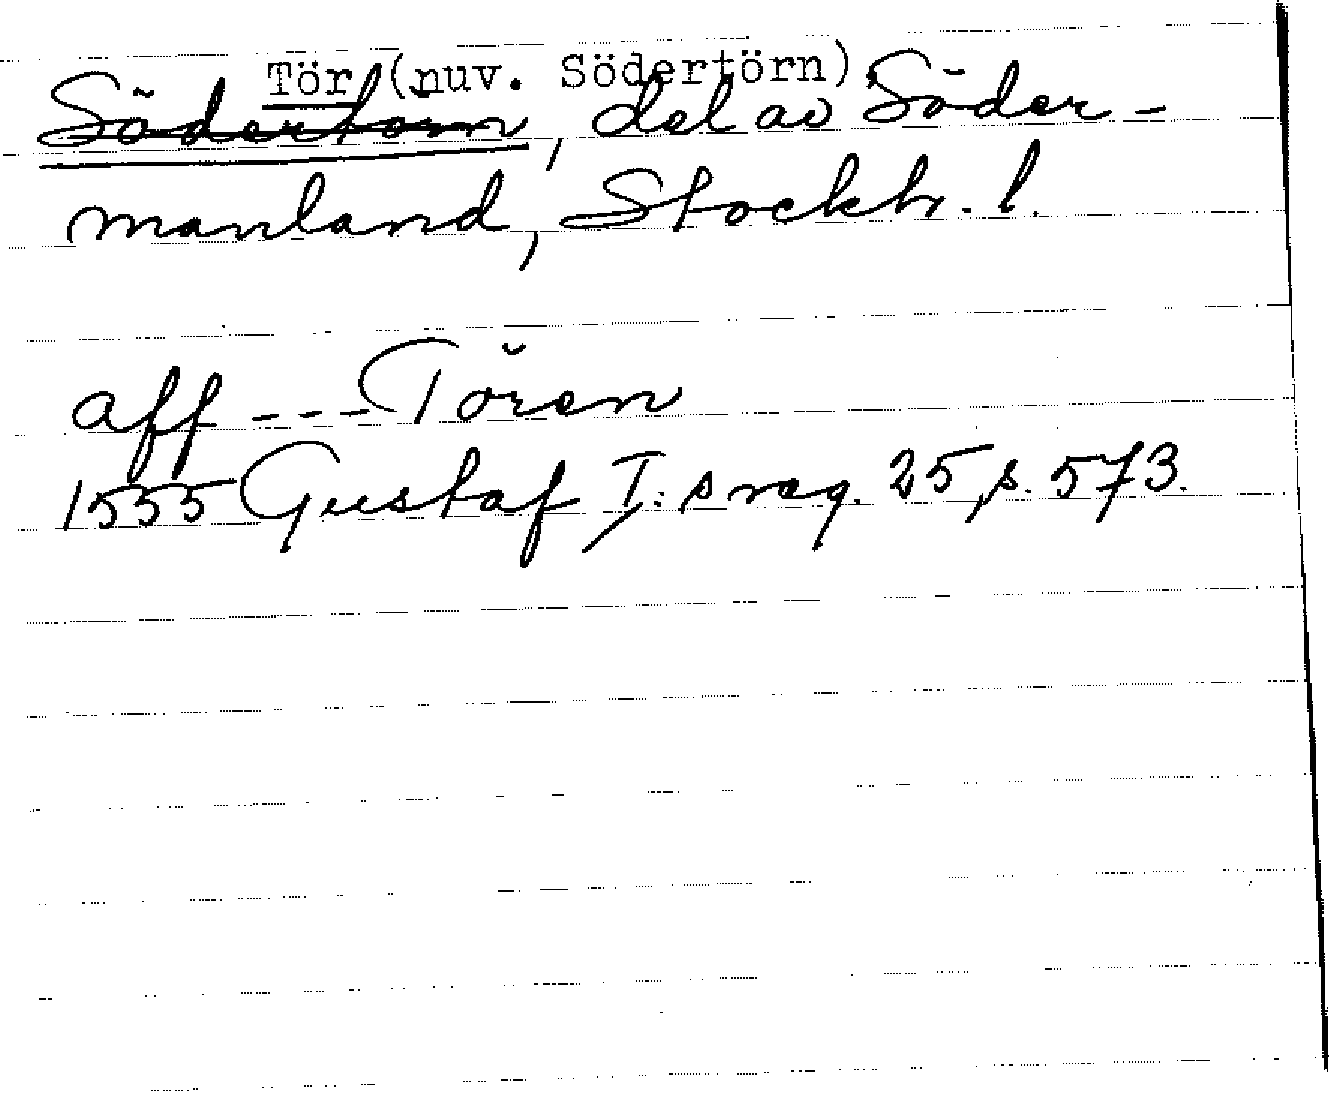 Tör (nuv. Södertörn),
Södertörn, del av Söder-
manland, Stockh. l.
aff --- Tören
1555 Gustaf I:s reg. 25, s. 573.